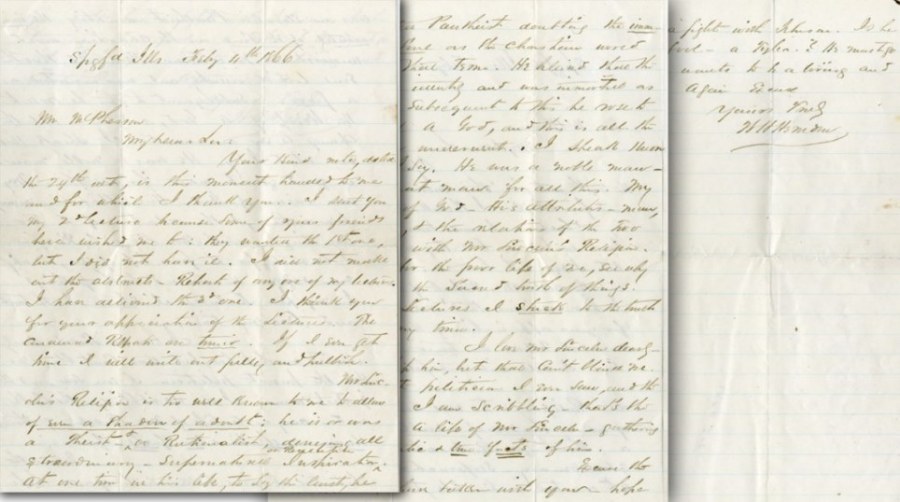 Spgfd Ills Feby 4th 1866
Mr McPherson
My dear Sir:
Your kind note, dated
the 24th ult, is this moment handed to me
and for which I thank you. I sent you
my 2d lecture because some of your friends
have wished me to: they wanted the 1st one,
but I did not have it. I did not make
out the abstracts of any one of my lectures
I have delivered the 3d one. I thank you
for your appreciation of the Lectures. The
are true. If I can get
time I will write out fully and publish.
Mr Lin-
coln's Religion is too well known to me to allow
of even a shadow of a doubt; he is or was
a Theist & a Rationalist, denying all
extraordinary – Supernatural Inspiration
at one time in his life, to say the least, he
Pantheist doubting the imm
as the Christian world
that term. He believed that the
identity and was immortal as
Subsequent to this he rose to
a God, and this is all the
underwent. I speak know
He was a noble man –
man for all this. My
of God – His attributes – man,
the relations of the two
with Mr Lincoln's Religion.
life of me, see why
things.
lectures I to the truth
time.
I love Mr Lincoln dearly –
him, but that don't blind me.
I am and the
I am Scribbling – that's the
a life of Mr Lincoln – gathering
& true facts of him.
Excuse the
with your hope
fight with Johnson. Is he
fool – a Tyler? He must go
wants to be a living and
Again Excuse
Yours Truly
W H Herndon